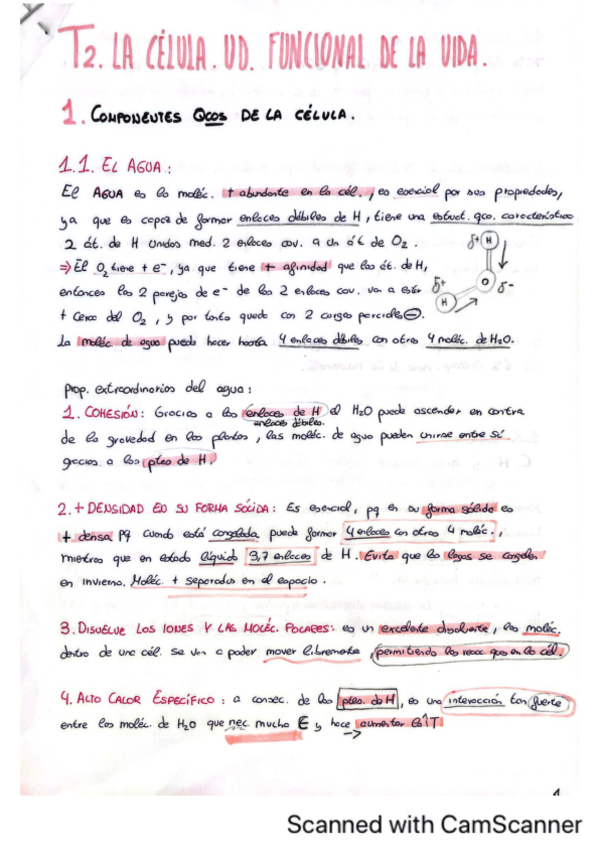 T2. LA CÉLULA. UD. FUNCIONAL DE LA VIDA.
1. COMPONENTES QCOS DE LA CÉLULA.
1.1. EL AGUA:
El AGUA es la moléc. + abundante en la cél., es esencial por sus propiedades,
ya que es capaz de formar enlaces débiles de H, tiene una estruct. qca. característica
2 át. de H unidos med. 2 enlaces cov. a un át. de O2.
⇒ El O2 tiene + e⁻, ya que tiene + afinidad que los át. de H,
entonces las 2 parejas de e⁻ de los 2 enlaces cov. va a estar
+ cerca del O2, y por tanto queda con 2 cargas parciales ⊖.
δ+ H
O δ-
δ+ H
La moléc. de agua puede hacer hasta 4 enlaces débiles con otras 4 moléc. de H2O.
Prop. extraordinarias del agua:
1. COHESIÓN: Gracias a los enlaces de H el H2O puede ascender en contra
enlaces débiles
de la gravedad en las plantas, las moléc. de agua pueden unirse entre sí
gracias a los ptes de H.
2. + DENSIDAD EN SU FORMA SÓLIDA: Es esencial, pq en su forma sólida es
+ densa pq cuando está congelada puede formar 4 enlaces con otras 4 moléc.,
mientras que en estado líquido 3,7 enlaces de H. Evita que los lagos se congelen
en invierno. Moléc. + separadas en el espacio.
3. DISUELVE LOS IONES Y LAS MOLÉC. POLARES: es un excelente disolvente, las moléc.
dentro de una cél. se van a poder mover libremente, permitiendo las reacc. qcas en la cél.
4. ALTO CALOR ESPECÍFICO: a consec. de los ptes. de H, es una interacción tan fuerte
entre las moléc. de H2O que nec. mucha E y hace aumentar la T
1
Scanned with CamScanner